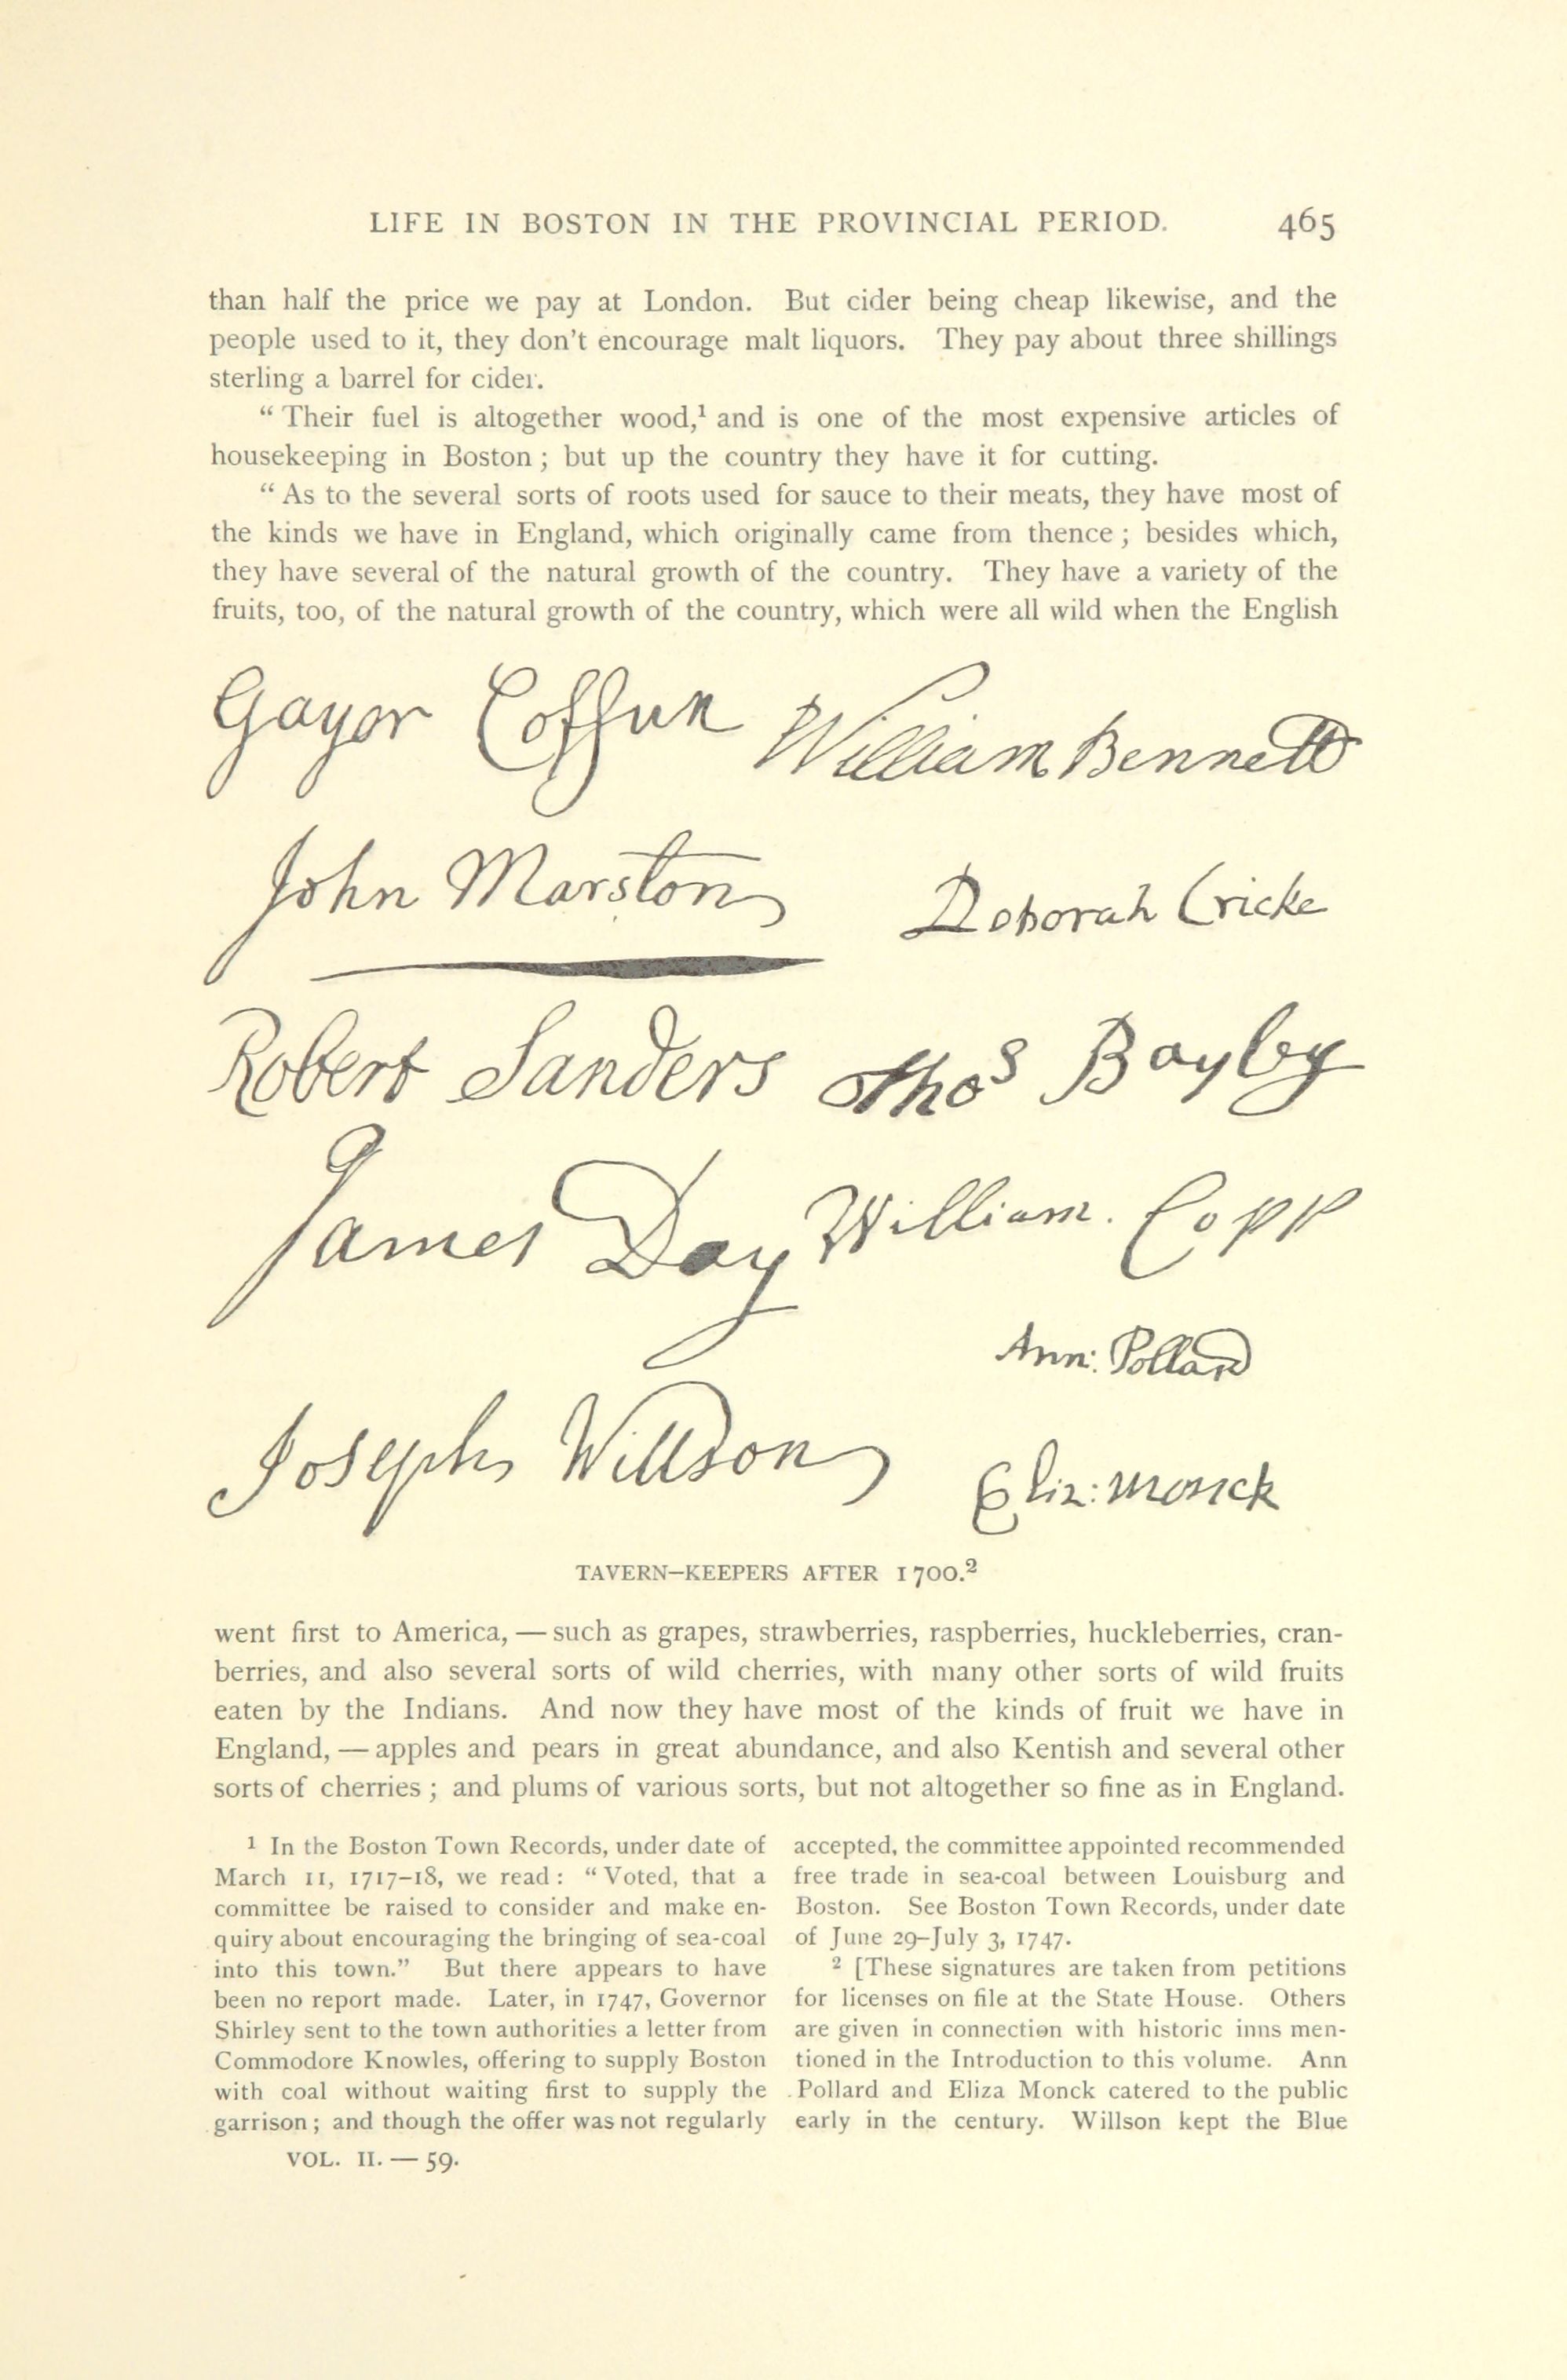 LIFE IN BOSTON IN THE PROVINCIAL PERIOD. 465
than half the price we pay at London. But cider being cheap likewise, and the
people used to it, they don't encourage malt liquors. They pay about three shillings
sterling a barrel for cider.
“Their fuel is altogether wood,¹ and is one of the most expensive articles of
housekeeping in Boston; but up the country they have it for cutting.
“As to the several sorts of roots used for sauce to their meats, they have most of
the kinds we have in England, which originally came from thence; besides which,
they have several of the natural growth of the country. They have a variety of the
fruits, too, of the natural growth of the country, which were all wild when the English
Gayer Coffun William Bennett
John Marston Deborah Cricke
Robert Sanders Thos Bayley
James Day William. Copp
Ann: Pollard
Joseph Willson Eliz: Monck
TAVERN–KEEPERS AFTER 1700.²
went first to America, — such as grapes, strawberries, raspberries, huckleberries, cran-
berries, and also several sorts of wild cherries, with many other sorts of wild fruits
eaten by the Indians. And now they have most of the kinds of fruit we have in
England, — apples and pears in great abundance, and also Kentish and several other
sorts of cherries; and plums of various sorts, but not altogether so fine as in England.
¹ In the Boston Town Records, under date of
March 11, 1717–18, we read: “Voted, that a
committee be raised to consider and make en-
quiry about encouraging the bringing of sea-coal
into this town.” But there appears to have
been no report made. Later, in 1747, Governor
Shirley sent to the town authorities a letter from
Commodore Knowles, offering to supply Boston
with coal without waiting first to supply the
garrison; and though the offer was not regularly
accepted, the committee appointed recommended
free trade in sea-coal between Louisburg and
Boston. See Boston Town Records, under date
of June 29–July 3, 1747.
² [These signatures are taken from petitions
for licenses on file at the State House. Others
are given in connection with historic inns men-
tioned in the Introduction to this volume. Ann
Pollard and Eliza Monck catered to the public
early in the century. Willson kept the Blue
VOL. II. — 59.